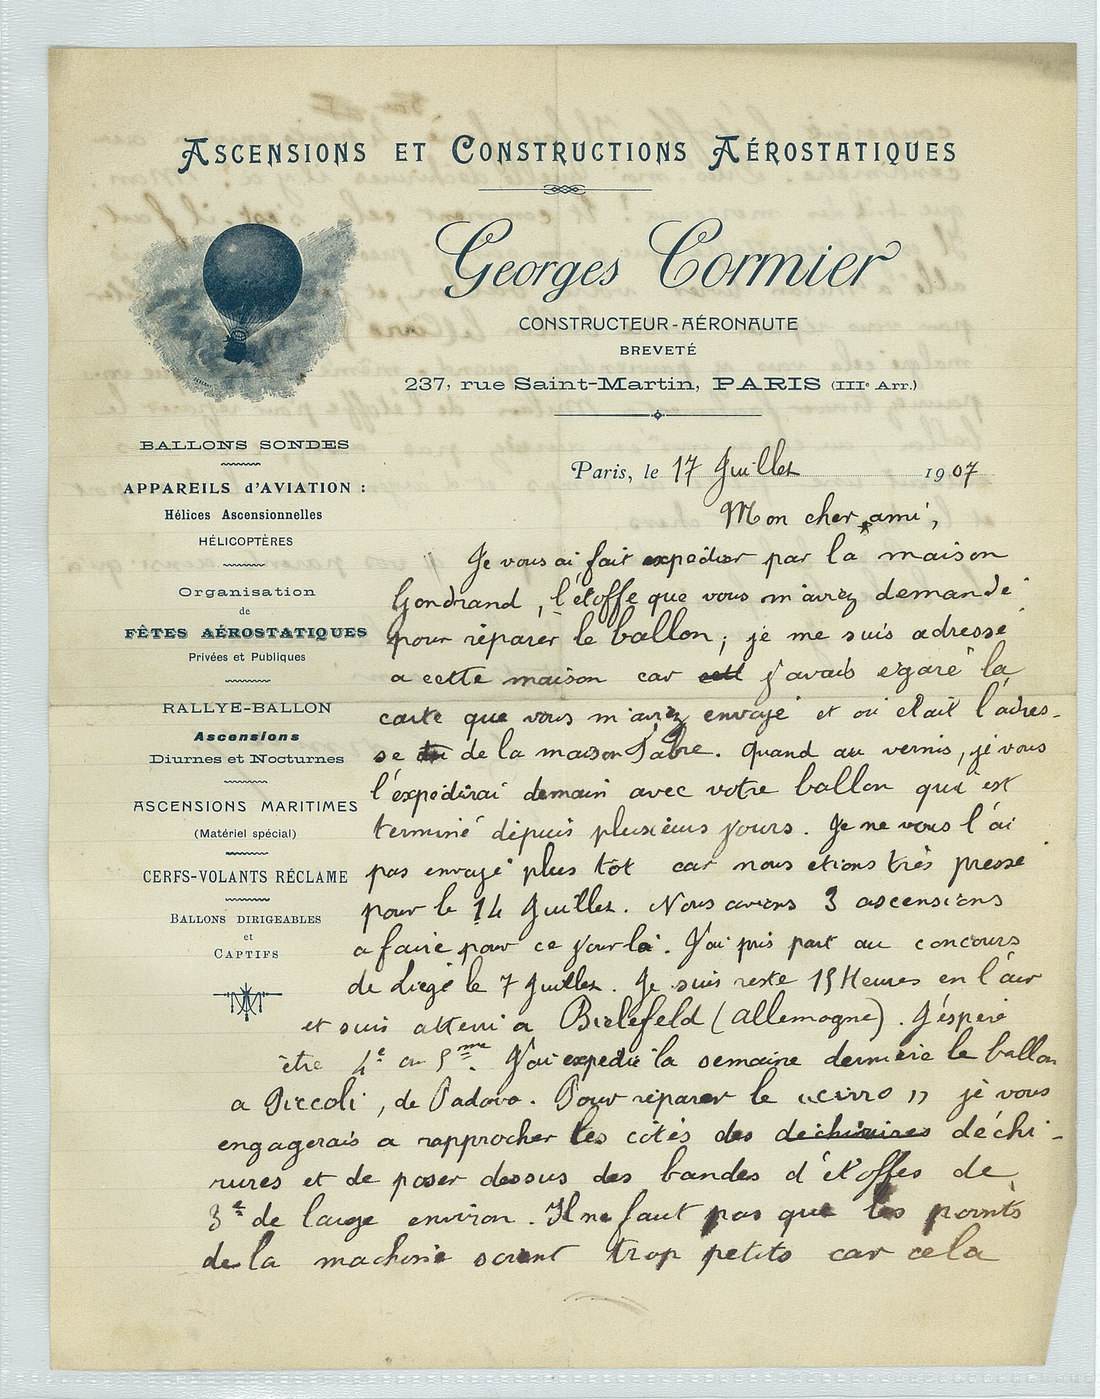 ASCENSIONS ET CONSTRUCTIONS AÉROSTATIQUES
Georges Cormier
CONSTRUCTEUR-AÉRONAUTE
BREVETÉ
237, rue Saint-Martin, PARIS (IIIe Arr.)
BALLONS SONDES
APPAREILS d'AVIATION :
Hélices Ascensionnelles
HÉLICOPTÈRES
Organisation
de
FÊTES AÉROSTATIQUES
Privées et Publiques
RALLYE-BALLON
Ascensions
Diurnes et Nocturnes
ASCENSIONS MARITIMES
(Matériel spécial)
CERFS-VOLANTS RÉCLAME
BALLONS DIRIGEABLES
et
CAPTIFS
Paris, le 17 Juillet 1907
Mon cher ami,
Je vous ai fait expedier par la maison
Gondrand, l'étoffe que vous m'aviez demandé
pour réparer le ballon; je me suis adressé
a cette maison car j'avais égaré la
carte que vous m'aviez envoyé et où etait l'adres-
se de la maison Fabre. Quand au vernis, je vous
l'expédirai demain avec votre ballon qui est
terminé depuis plusieurs jours. Je ne vous l'ai
pas envoyé plus tôt car nous etions très pressé
pour le 14 Juillet. Nous avions 3 ascensions
a faire pour ce jour là. J'ai pris part au concours
de Liège le 7 Juillet. Je suis resté 15 Heures en l'air
et suis atterri a Bielefeld (Allemagne). J'éspère
être 4e ou 5me. J'ai expedié la semaine dernière le ballon
a Piccoli, de Padova. Pour réparer le "cirro" je vous
engagerais a rapprocher les côtés des dechirures déchi-
rures et de poser dessus des bandes d'étoffes de
3c de large environ. Il ne faut pas que les points
de la machine soient trop petits car cela